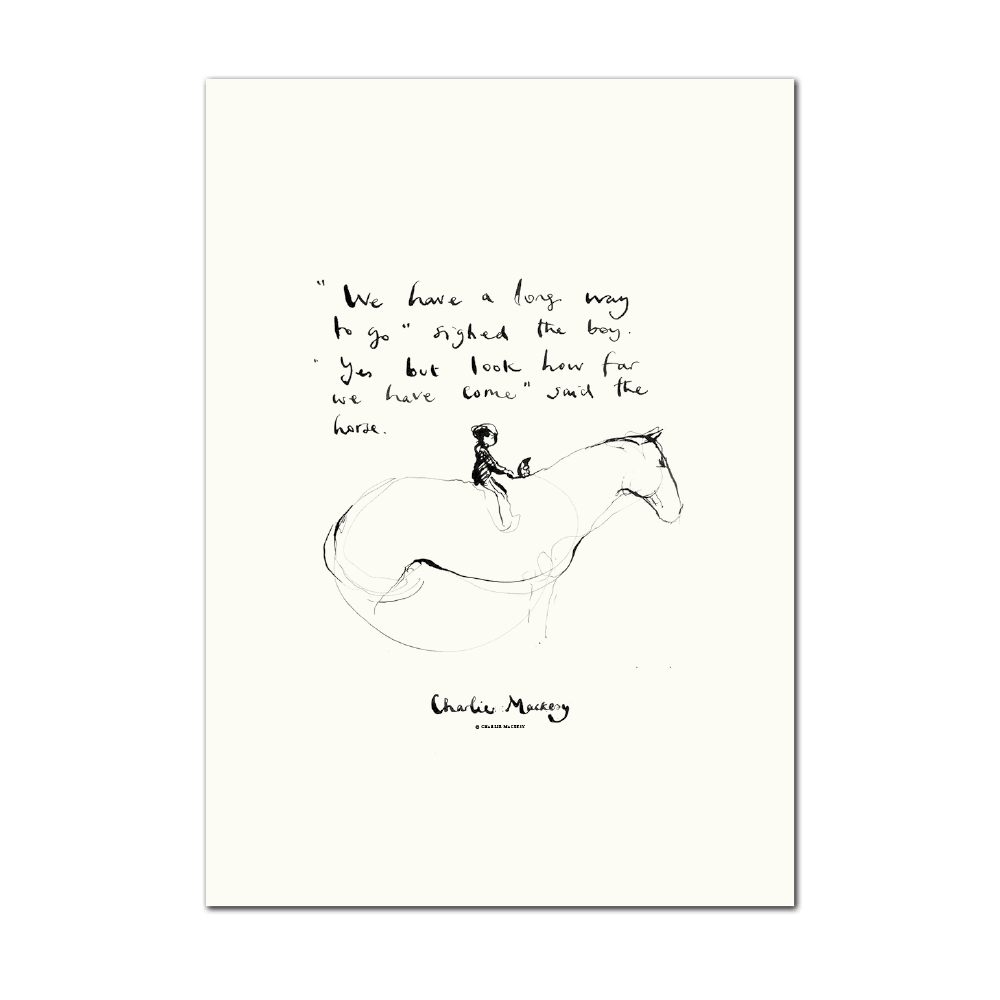 " We have a long way
to go " sighed the boy.
" Yes but look how far
we have come " said the
horse.
Charlie Mackesy
© CHARLIE MACKESY